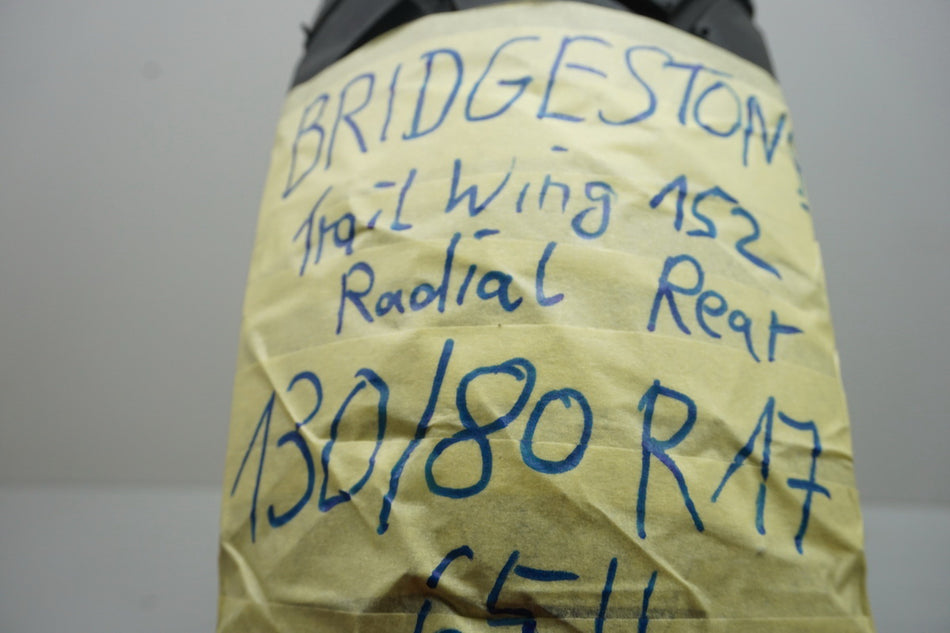 BRIDGESTONE
Trail Wing 152
Radial Rear
130/80 R 17